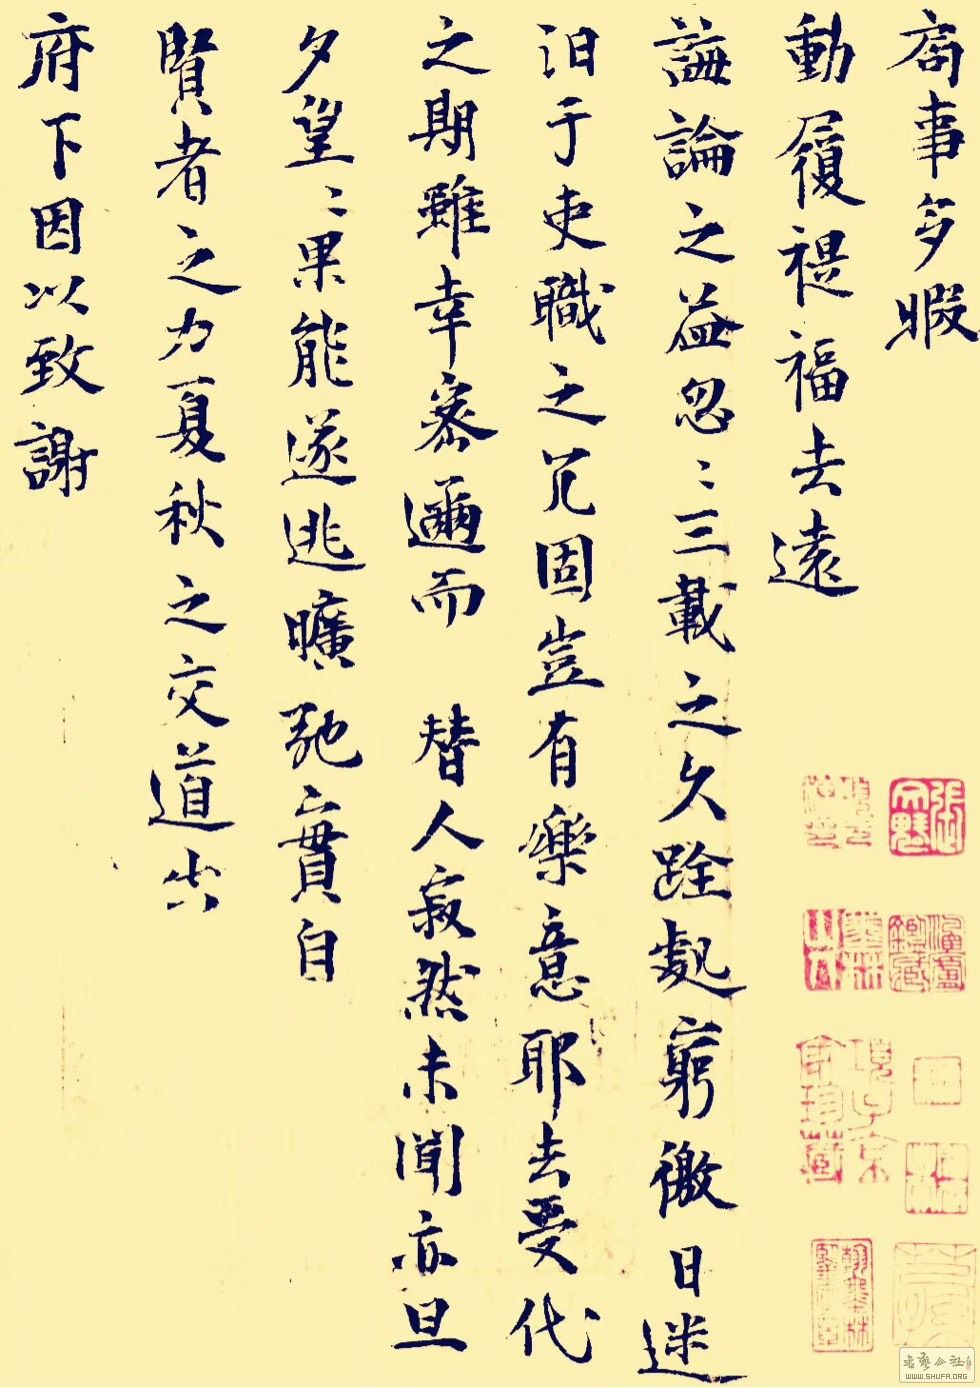 局事多暇
動履禔福去遠
誨論之益忽〻三載之久跧處窮徼日迷
汨于吏職之冗固豈有樂意耶去受代
之期雖幸密邇而 替人寂然未聞亦旦
夕望〻果能遂逃曠弛實自
賢者之力夏秋之交道出
府下因以致謝
項子京家珍藏
WWW.SHUFA.ORG